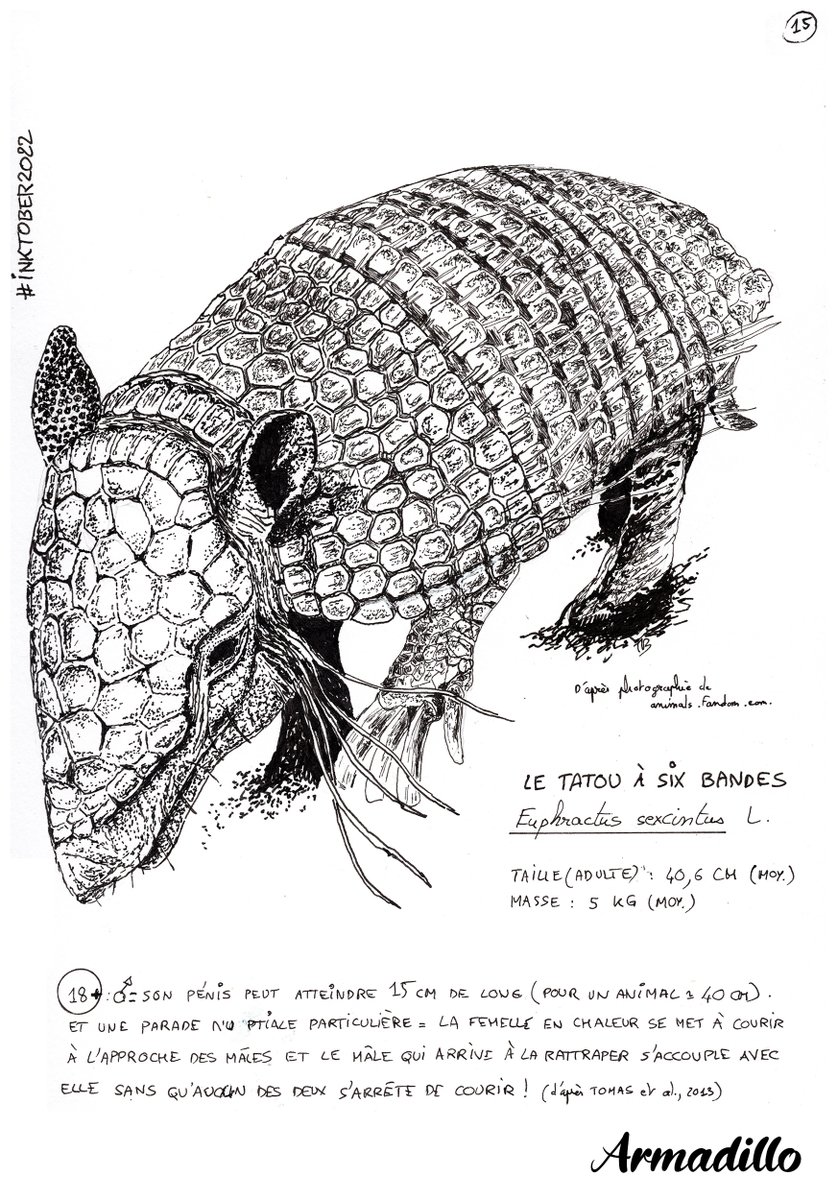 15
#INKTOBER2022
D'après photographie de
animals.fandom.com.
LE TATOU À SIX BANDES
Euphractus sexcintus L.
TAILLE (ADULTE) : 40,6 CM (MOY.)
MASSE : 5 KG (MOY.)
18+ : ♂ = SON PÉNIS PEUT ATTEINDRE 15 CM DE LONG (POUR UN ANIMAL ± 40 CM).
ET UNE PARADE NUPTIALE PARTICULIÈRE = LA FEMELLE EN CHALEUR SE MET À COURIR
À L'APPROCHE DES MÂLES ET LE MÂLE QUI ARRIVE À LA RATTRAPER S'ACCOUPLE AVEC
ELLE SANS QU'AUCUN DES DEUX S'ARRÊTE DE COURIR ! (d'après TOMAS et al., 2013)
Armadillo